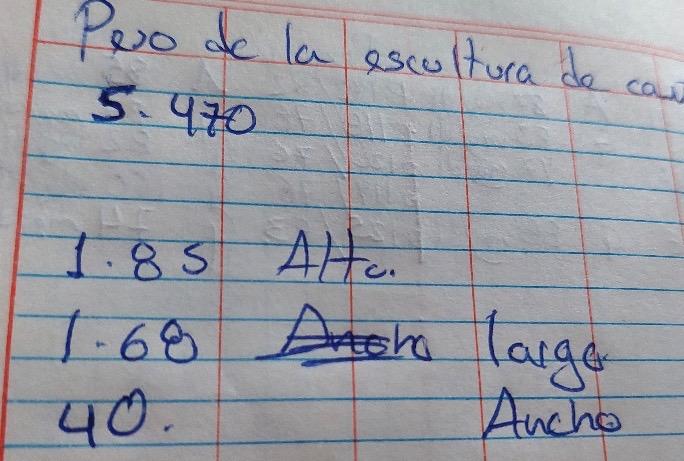 Peso de la escultura de
5.470
1.85 Alto.
1.68 Ancho largo
40. Ancho